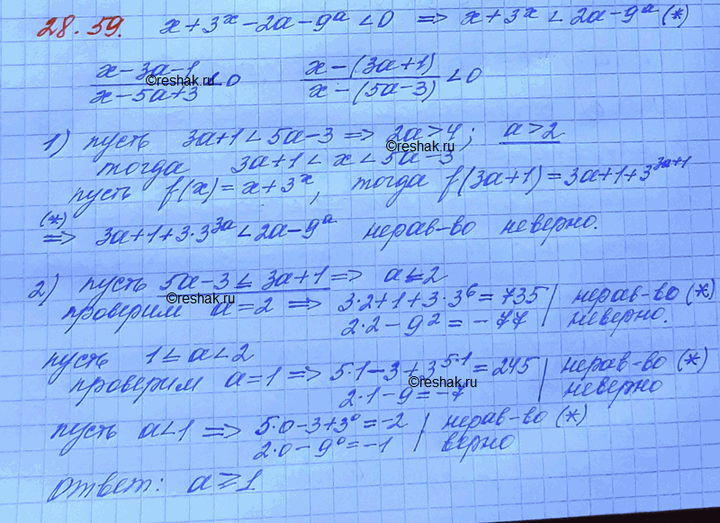 28.59. x+3^x-2a-9^a<0 => x+3^x<2a-9^a (*)
(x-3a-1)/(x-5a+3)<0   (x-(3a+1))/(x-(5a-3))<0
©reshak.ru
1) пусть 3a+1<5a-3 => 2a>4; a>2
©reshak.ru
тогда 3a+1<x<5a-3
пусть f(x)=x+3^x, тогда f(3a+1)=3a+1+3^(3a+1)
(*) => 3a+1+3·3^(3a)<2a-9^a нерав-во неверно.
2) пусть 5a-3≤3a+1 => a≤2
©reshak.ru
проверим a=2 => 3·2+1+3·3^6=735 | нерав-во (*)
2·2-9^2=-77 | неверно.
пусть 1≤a<2
проверим a=1 => 5·1-3+3^(5·1)=245 | нерав-во (*)
©reshak.ru
2·1-9=-7 | неверно
пусть a<1 => 5·0-3+3^0=-2 | нерав-во (*)
2·0-9^0=-1 | верно
Ответ: a≥1